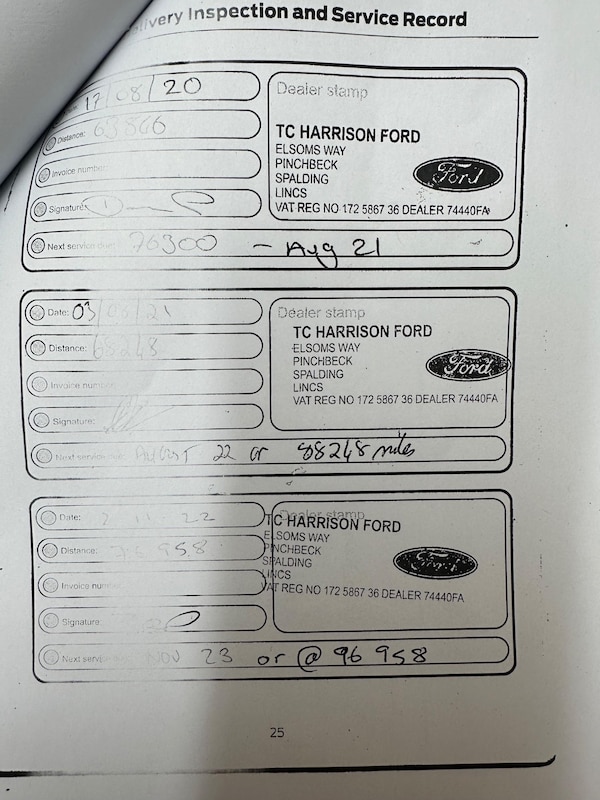 livery Inspection and Service Record
17/08/20
Dealer stamp
Distance: 63866
TC HARRISON FORD
ELSOMS WAY
PINCHBECK
SPALDING
LINCS
VAT REG NO 172 5867 36 DEALER 74440FA
Ford
Invoice number
Signature:
Next service due: 76300 - Aug 21
Date: 03/ /21
Dealer stamp
Distance: 68248
TC HARRISON FORD
ELSOMS WAY
PINCHBECK
SPALDING
LINCS
VAT REG NO 172 5867 36 DEALER 74440FA
Ford
Invoice number
Signature:
Next service due: August 22 or 88248 miles
Date: 2 11 22
Dealer stamp
Distance: 76 958
TC HARRISON FORD
ELSOMS WAY
PINCHBECK
SPALDING
LINCS
VAT REG NO 172 5867 36 DEALER 74440FA
Ford
Invoice number
Signature:
Next service NOV 23 or @ 96 958
25